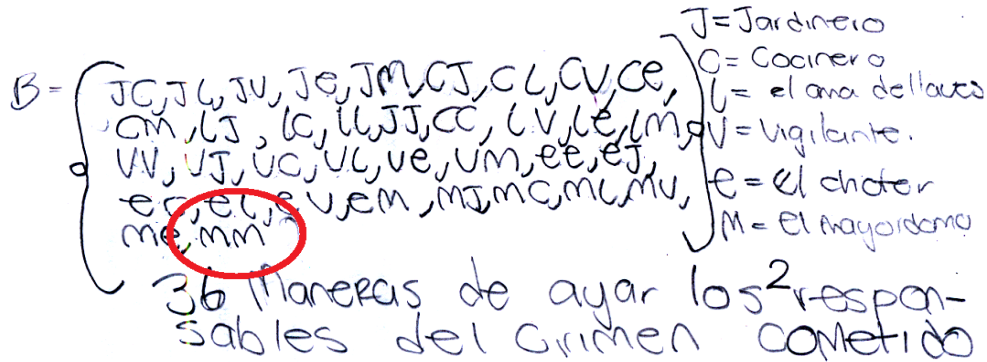 B = { JC, JL, JV, Je, JM, CJ, CL, CV, Ce,
CM, LJ, LC, LL, JJ, CC, LV, Le, LM,
VV, VJ, VC, VL, Ve, VM, ee, eJ,
eC, eL, eV, eM, MJ, MC, ML, MV,
Me, MM }
J = Jardinero
C = Cocinero
L = el ama dellaves
V = Vigilante.
e = El chofer
M = El Mayordomo
36 Maneras de ayar los 2 respon-
sables del crimen cometido